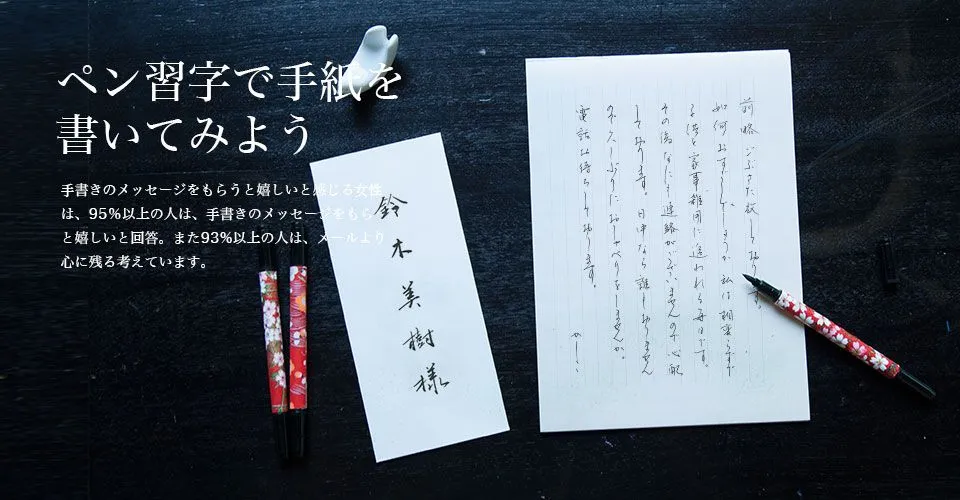 ペン習字で手紙を
書いてみよう
手書きのメッセージをもらうと嬉しいと感じる女性
は、95%以上の人は、手書きのメッセージをもらう
と嬉しいと回答。また93%以上の人は、メールより
心に残る考えています。
鈴木美樹様
前略 ごぶさた致しております。
如何お過ごしでしょうか 私は相変らず
子供と家事雑用に追われる毎日です。
その後なにも連絡がございませんので心配
しております。日中なら誰もおりません
ので久しぶりにおしゃべりをしませんか。
電話お待ちしております。
かしこ